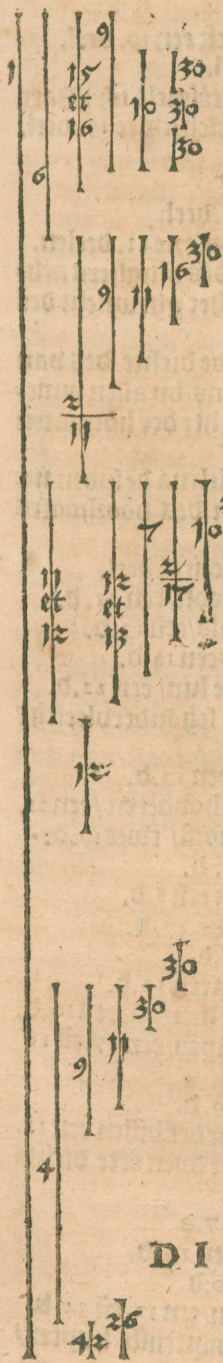 9
1
15
et
16
10
30
30
30
6
9
11
16
30
2
11
11
et
12
12
et
13
7
2
17
10
12
30
30
9
11
4
D I
42
26